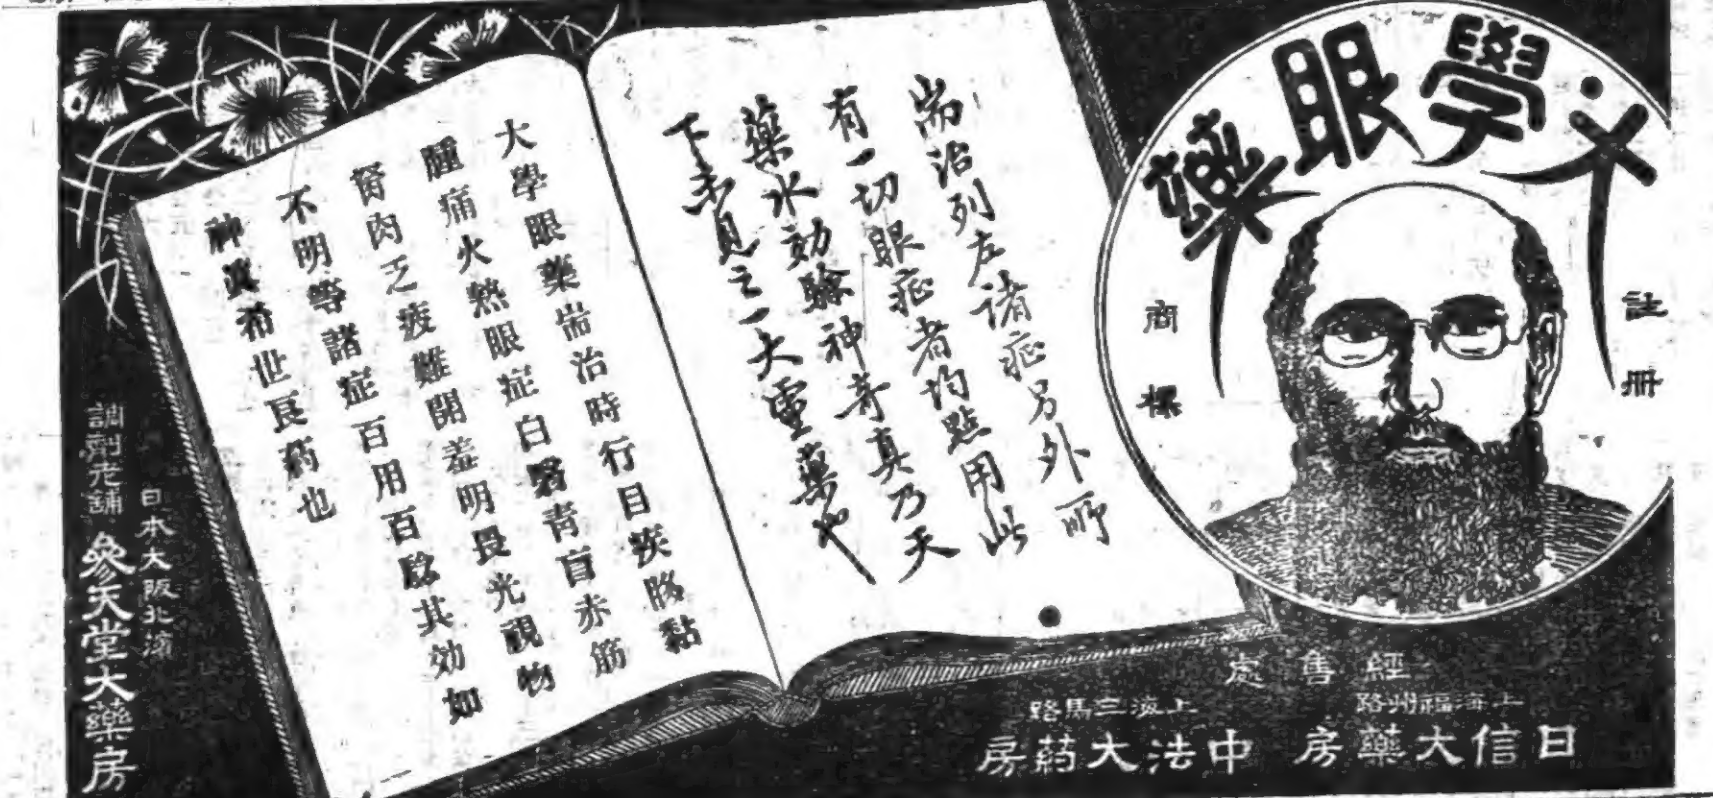 大學眼藥
註冊
商標
耑治列左諸症另外所
有一切眼症者均點用此
藥水効驗神奇真乃天
下未見之一大靈藥也
大學眼藥耑治時行目疾眵黏
腫痛火熱眼症白翳青盲赤筋
胬肉乏疲難開羞明畏光視物
不明等諸症百用百驗其効如
神眞希世良葯也
經售處
上海福州路
日信大藥房
上海三馬路
中法大葯房
日本大阪北濱
調劑老舖
參天堂大藥房